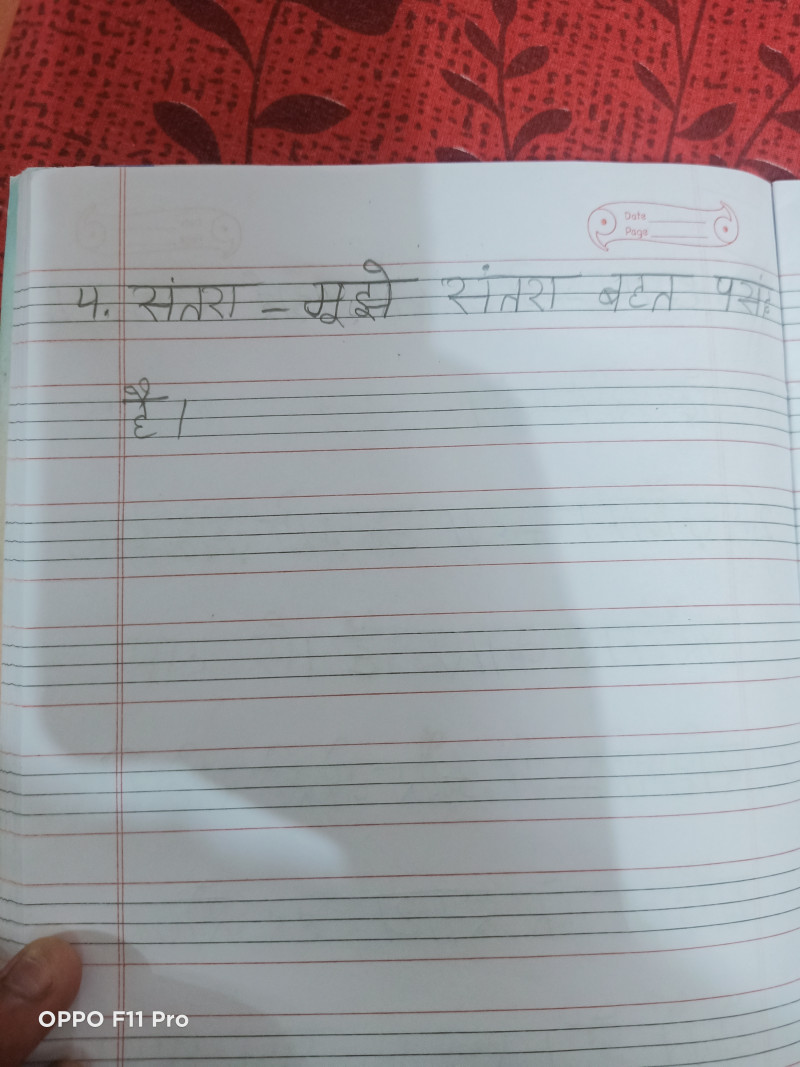 Date
Page
५. संतरा - मूझे संतरा बहत पसंद
है।
OPPO F11 Pro